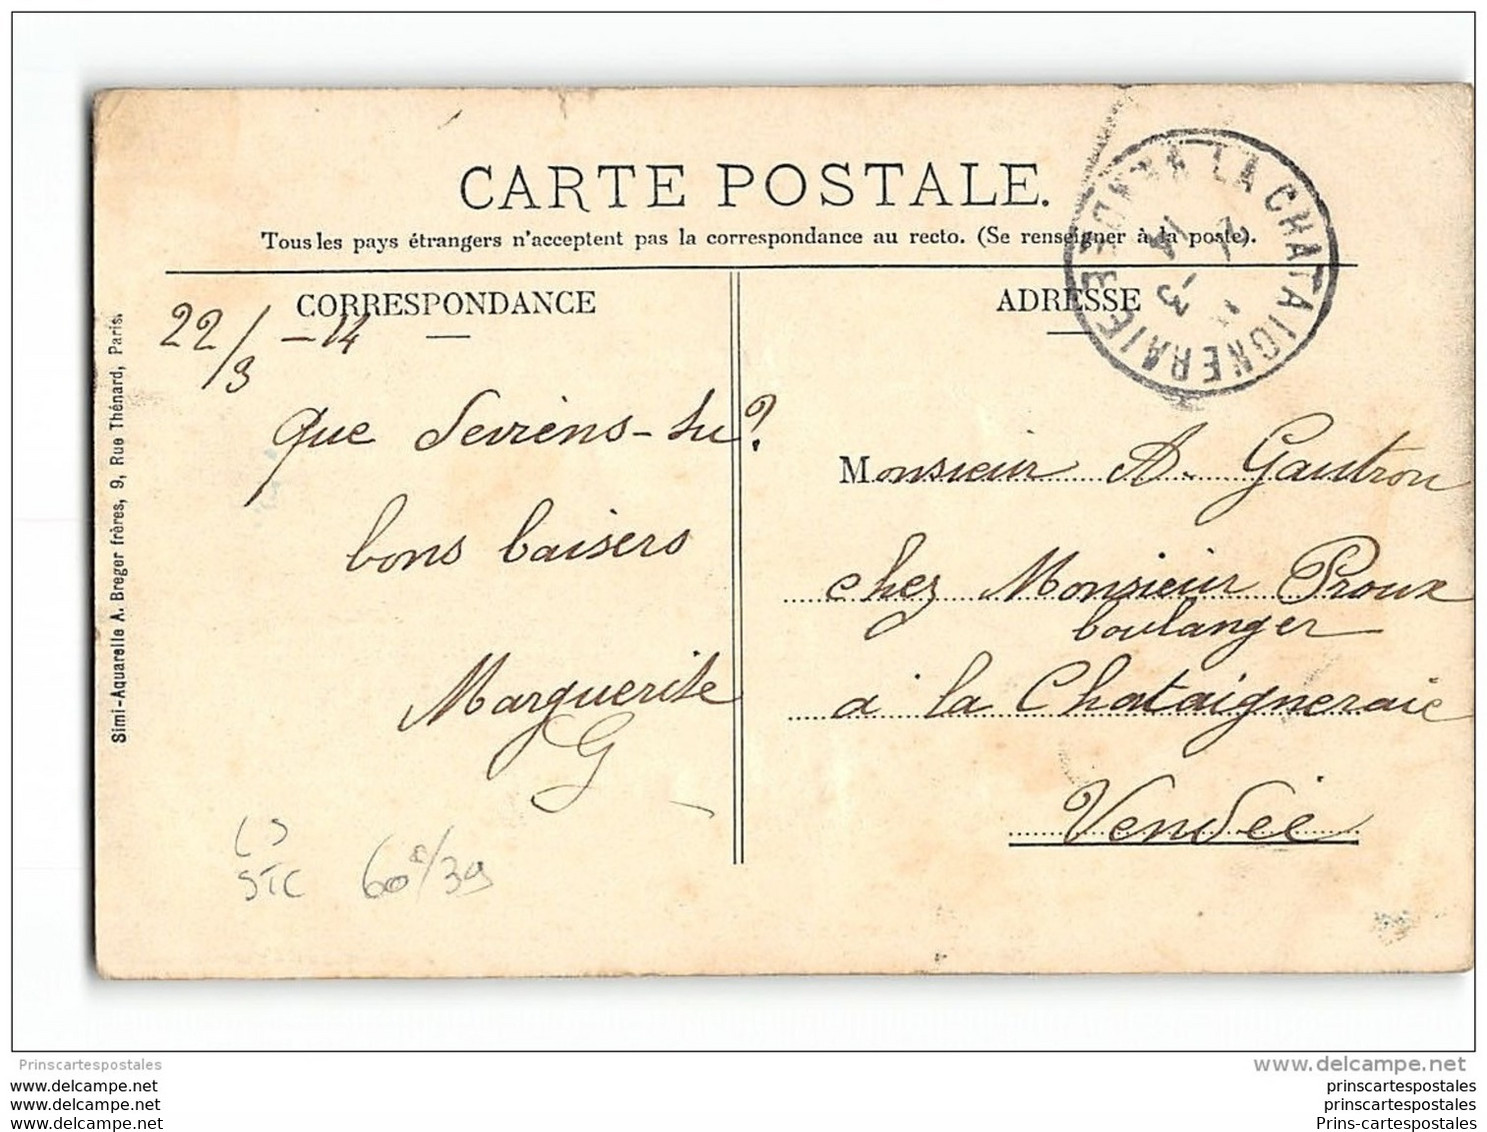 CARTE POSTALE.
Tous les pays étrangers n'acceptent pas la correspondance au recto. (Se renseigner à la poste).
CORRESPONDANCE
22/3 - 14
que deviens-tu?
bons baisers
Marguerite
G
ADRESSE
LA CHATAIGNERAIE
Monsieur A. Gautron
chez Monsieur Proux
boulanger
a la Chataigneraie
Vendée
Simi-Aquarelle A. Breger frères, 9, Rue Thénard, Paris.
STC 60e/39
Prinscartespostales
www.delcampe.net
www.delcampe.net
www.delcampe.net
www.delcampe.net
prinscartespostales
prinscartespostales
Prins-cartespostales